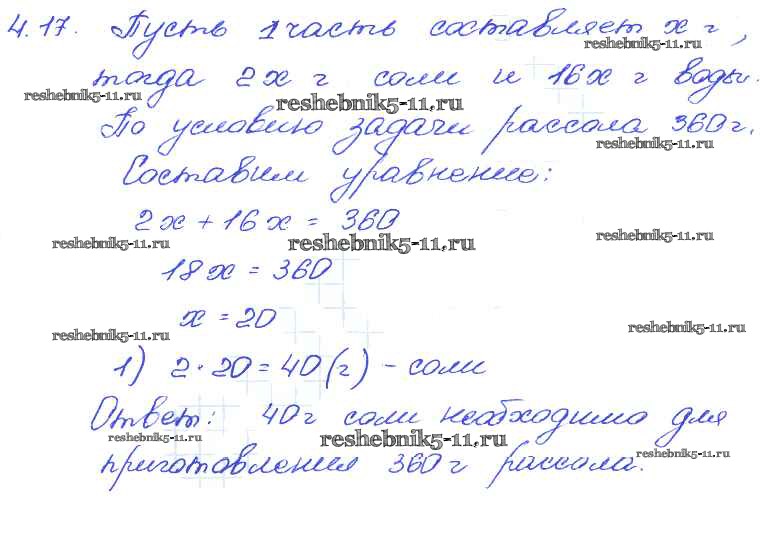 4.17. Пусть 1 часть составляет х г,
reshebnik5-11.ru
тогда 2х г соли и 16х г воды.
reshebnik5-11.ru
reshebnik5-11.ru
По условию задачи рассола 360 г.
reshebnik5-11.ru
Составим уравнение:
2х + 16х = 360
reshebnik5-11.ru
reshebnik5-11.ru
reshebnik5-11.ru
18х = 360
х = 20
reshebnik5-11.ru
reshebnik5-11.ru
1) 2 · 20 = 40 (г) - соли
Ответ: 40 г соли необходимо для
reshebnik5-11.ru
reshebnik5-11.ru
reshebnik5-11.ru
приготовления 360 г рассола.